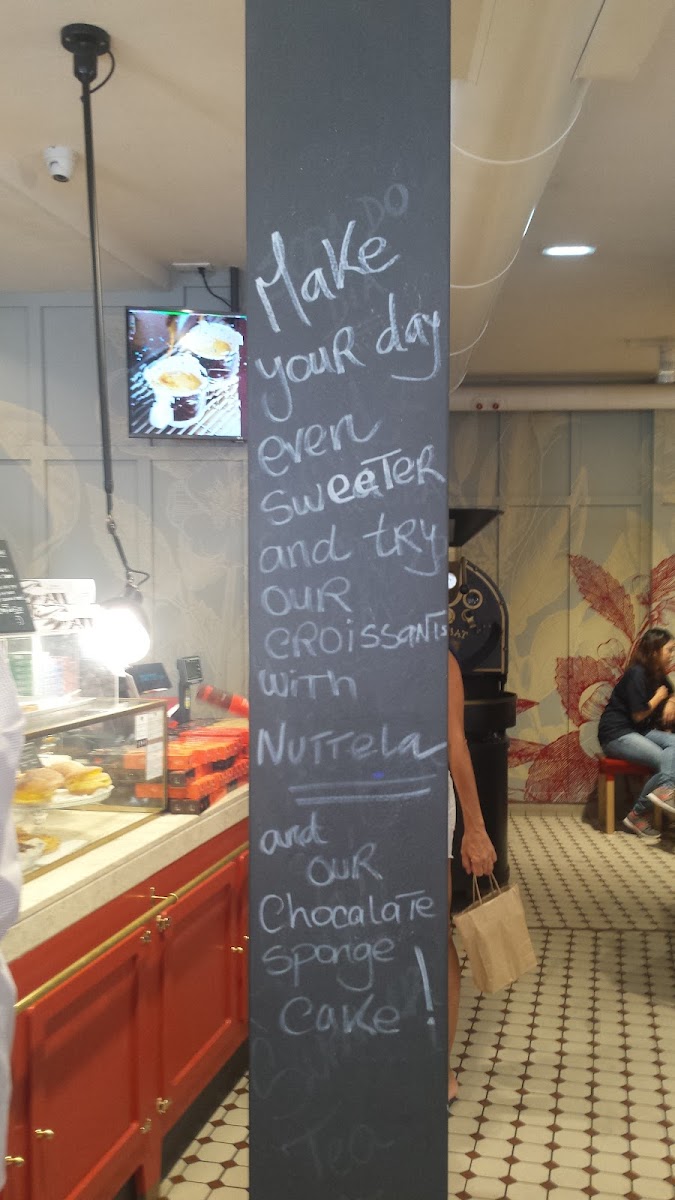 Make
your day
even
sweeter
and try
our
croissants
with
Nuttela
and
our
Chocalate
sponge
cake!
Tea